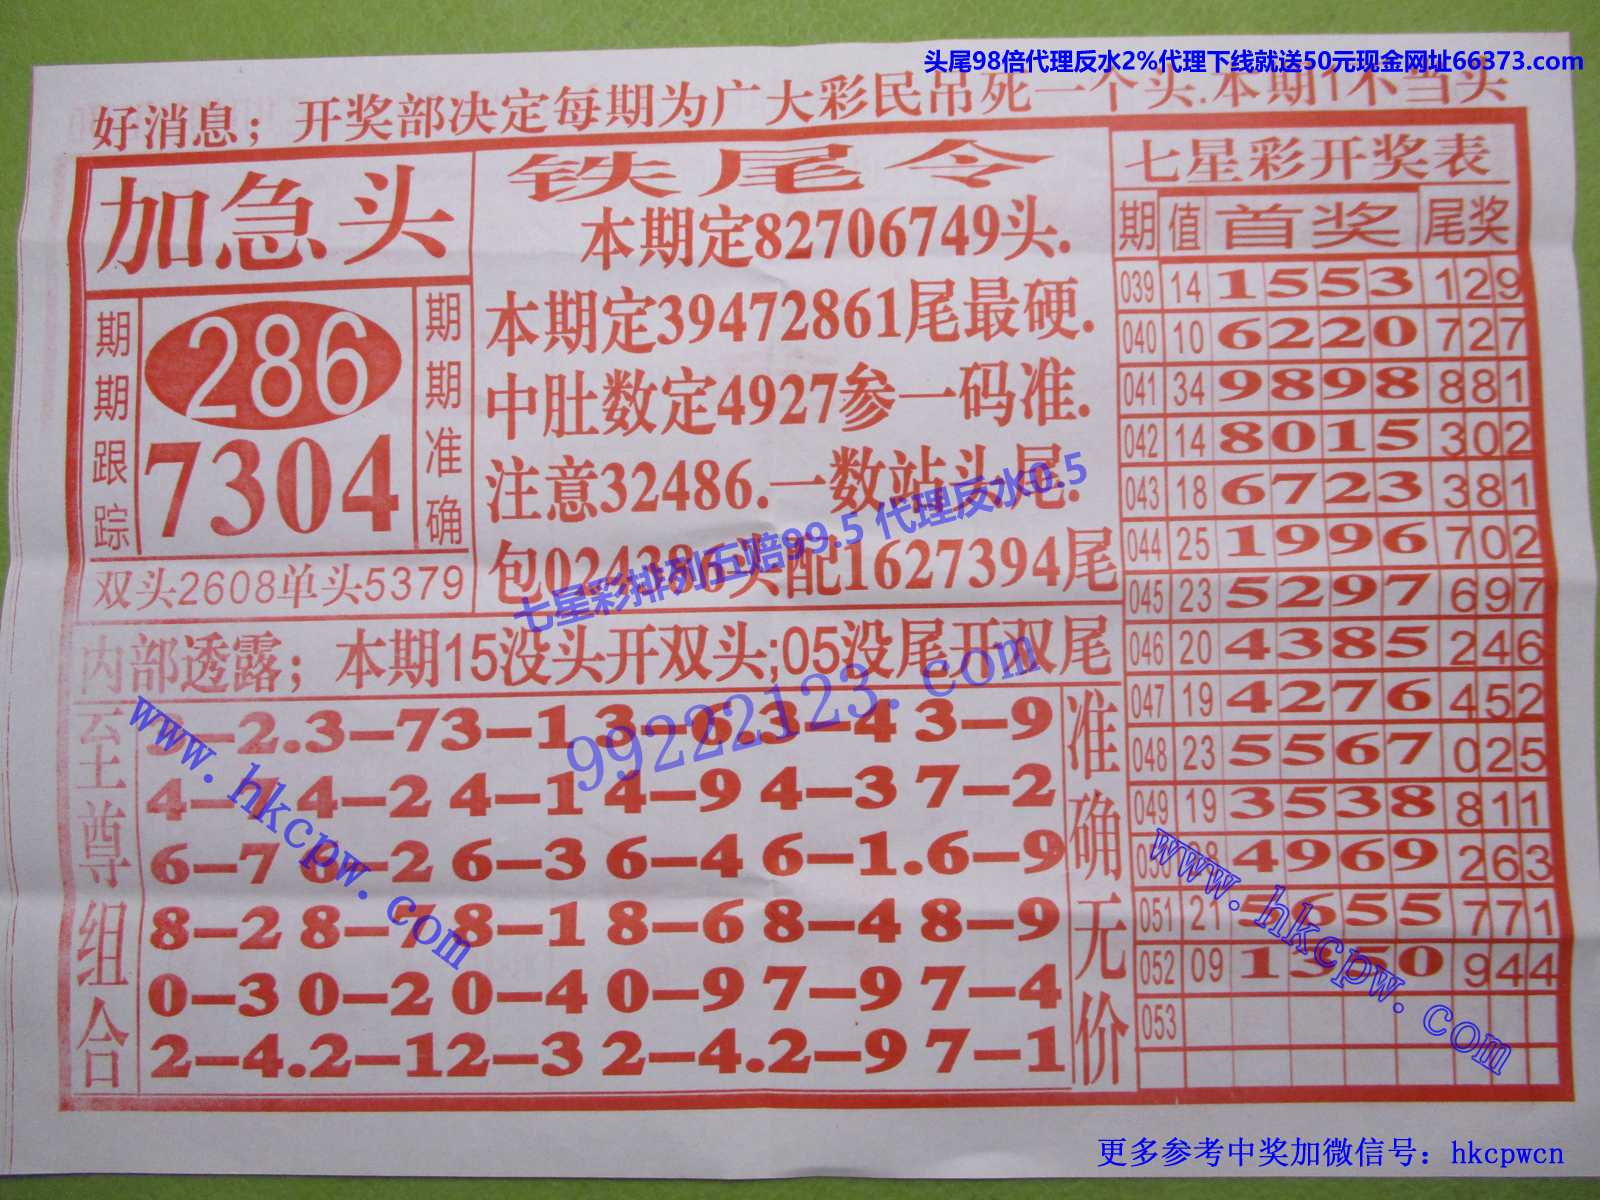 头尾98倍代理反水2%代理下线就送50元现金网址66373.com
好消息；开奖部决定每期为广大彩民吊死一个头.本期1不当头
加急头
期期跟踪
286
7304
期期准确
双头2608单头5379
铁尾令
本期定82706749头.
本期定39472861尾最硬.
中肚数定4927参一码准.
注意32486.一数站头尾.
包024386头配1627394尾
七星彩排列五赔99.5 代理反水0.5
内部透露；本期15没头开双头;05没尾开双尾
99222123.com
www.hkcpw.com
至尊组合
3-2.3-73-1 3-6.3-4 3-9
4-7 4-2 4-1 4-9 4-3 7-2
6-7 6-2 6-3 6-4 6-1.6-9
8-2 8-7 8-1 8-6 8-4 8-9
0-3 0-2 0-4 0-9 7-9 7-4
2-4.2-12-3 2-4.2-9 7-1
准确无价
七星彩开奖表
期 值 首奖 尾奖
039 14 1553 129
040 10 6220 727
041 34 9898 881
042 14 8015 302
043 18 6723 381
044 25 1996 702
045 23 5297 697
046 20 4385 246
047 19 4276 452
048 23 5567 025
049 19 3538 811
050 28 4969 263
051 21 5655 771
052 09 1350 944
053
www.hkcpw.com
更多参考中奖加微信号：hkcpwcn